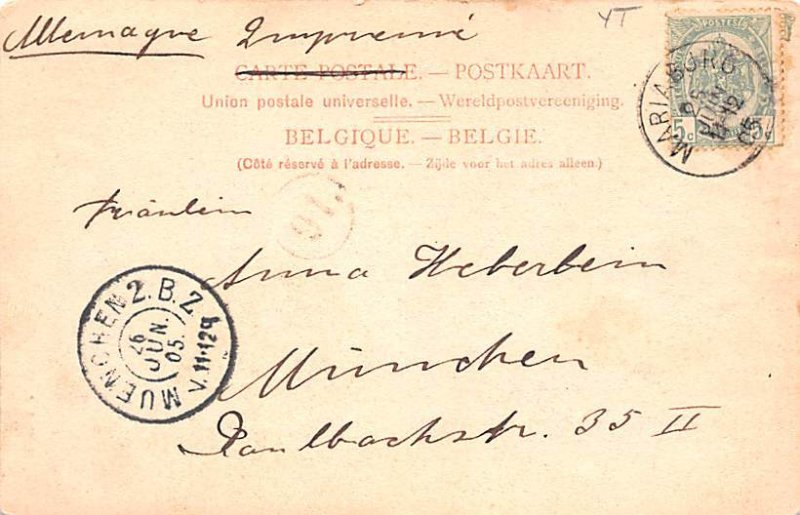 Allemagne Imprimé
YT
CARTE POSTALE. — POSTKAART.
Union postale universelle. — Wereldpostvereeniging.
BELGIQUE. — BELGIE.
(Côté réservé à l'adresse. — Zijde voor het adres alleen.)
POSTES
5c 5c
MARIABURG
JUIN
11-12
05
Fräulein
Anna Heberlein
München
Kaulbachstr. 35 II
MUENCHEN 2.B.Z.
26
JUN.
05.
V.11-12